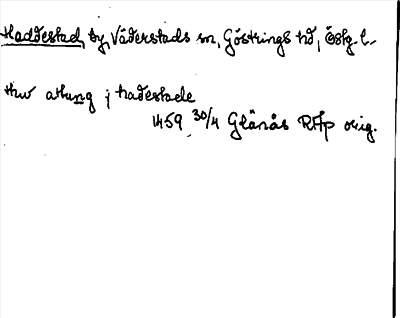 Haddestad, by, Väderstads sn, Göstrings hd, Östg. l.
thw attung j hadestade
1459 30/4 Glänås RAp orig.